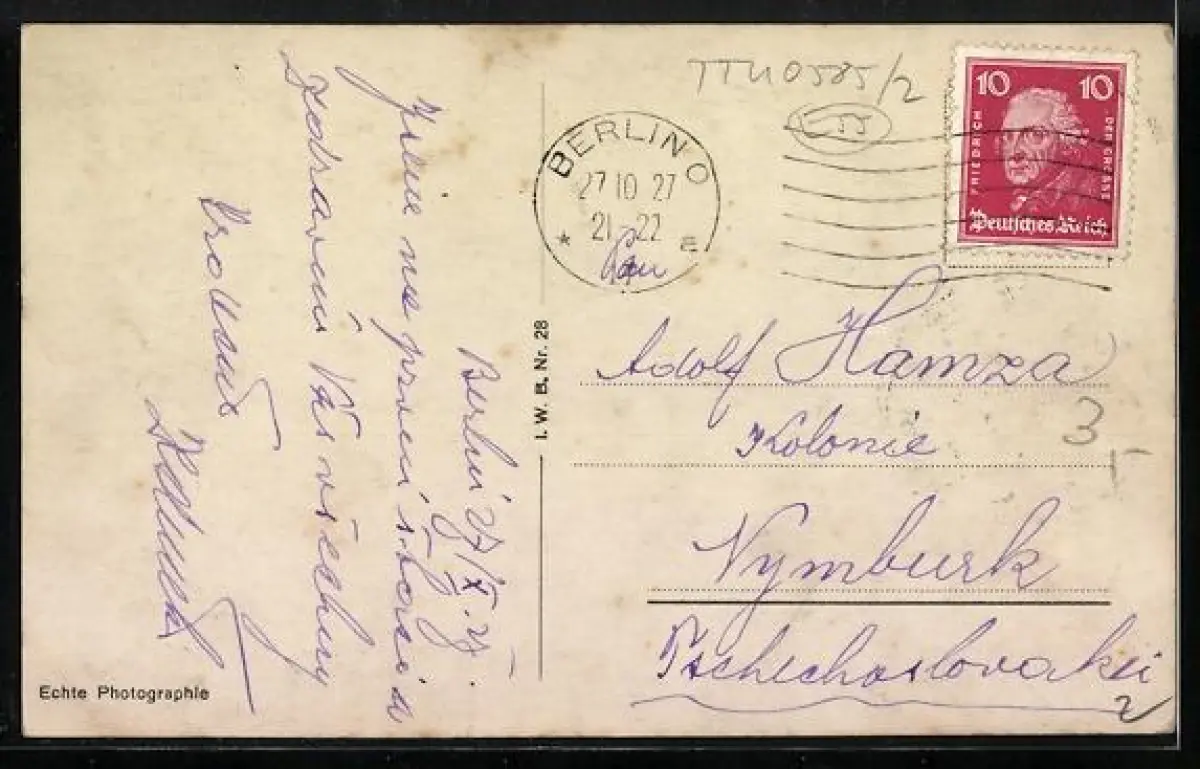 TTU0585/2
BERLIN O
27 10 27
21-22
* E
10 10
FRIEDRICH
DER GROSSE
Deutsches Reich
Pan
Adolf Hamza
Kolonie
Nymburk
Tschechoslovakei
3
2
I. W. B. Nr. 28
Berlin 27/X. 27.
Jsme na
Zdravím Vás všechny
Echte Photographie